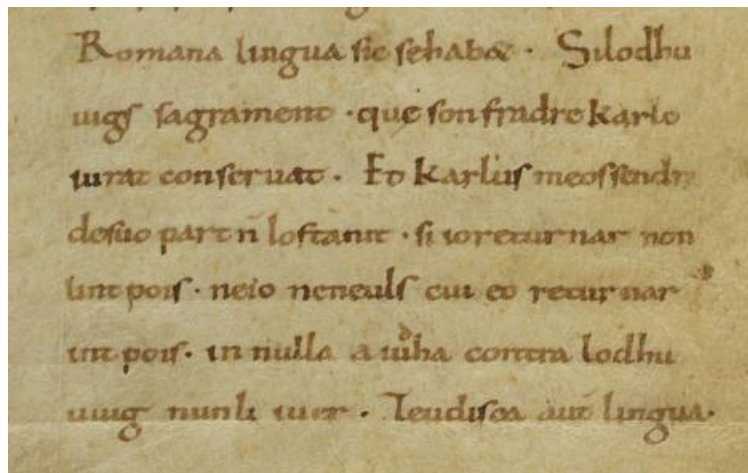 Romana lingua sic se hab&. Silodhu
uigs sagrament · que son fradre karlo
iurat conseruat. Et karlus meossendra
desuo part n̄ lostanit · si ioreturnar non
lint pois · neio neneuls cui eo returnar
int pois · in nulla aiudha contra lodhu
uuig nunli iuer. Teudisca aut̄ lingua·